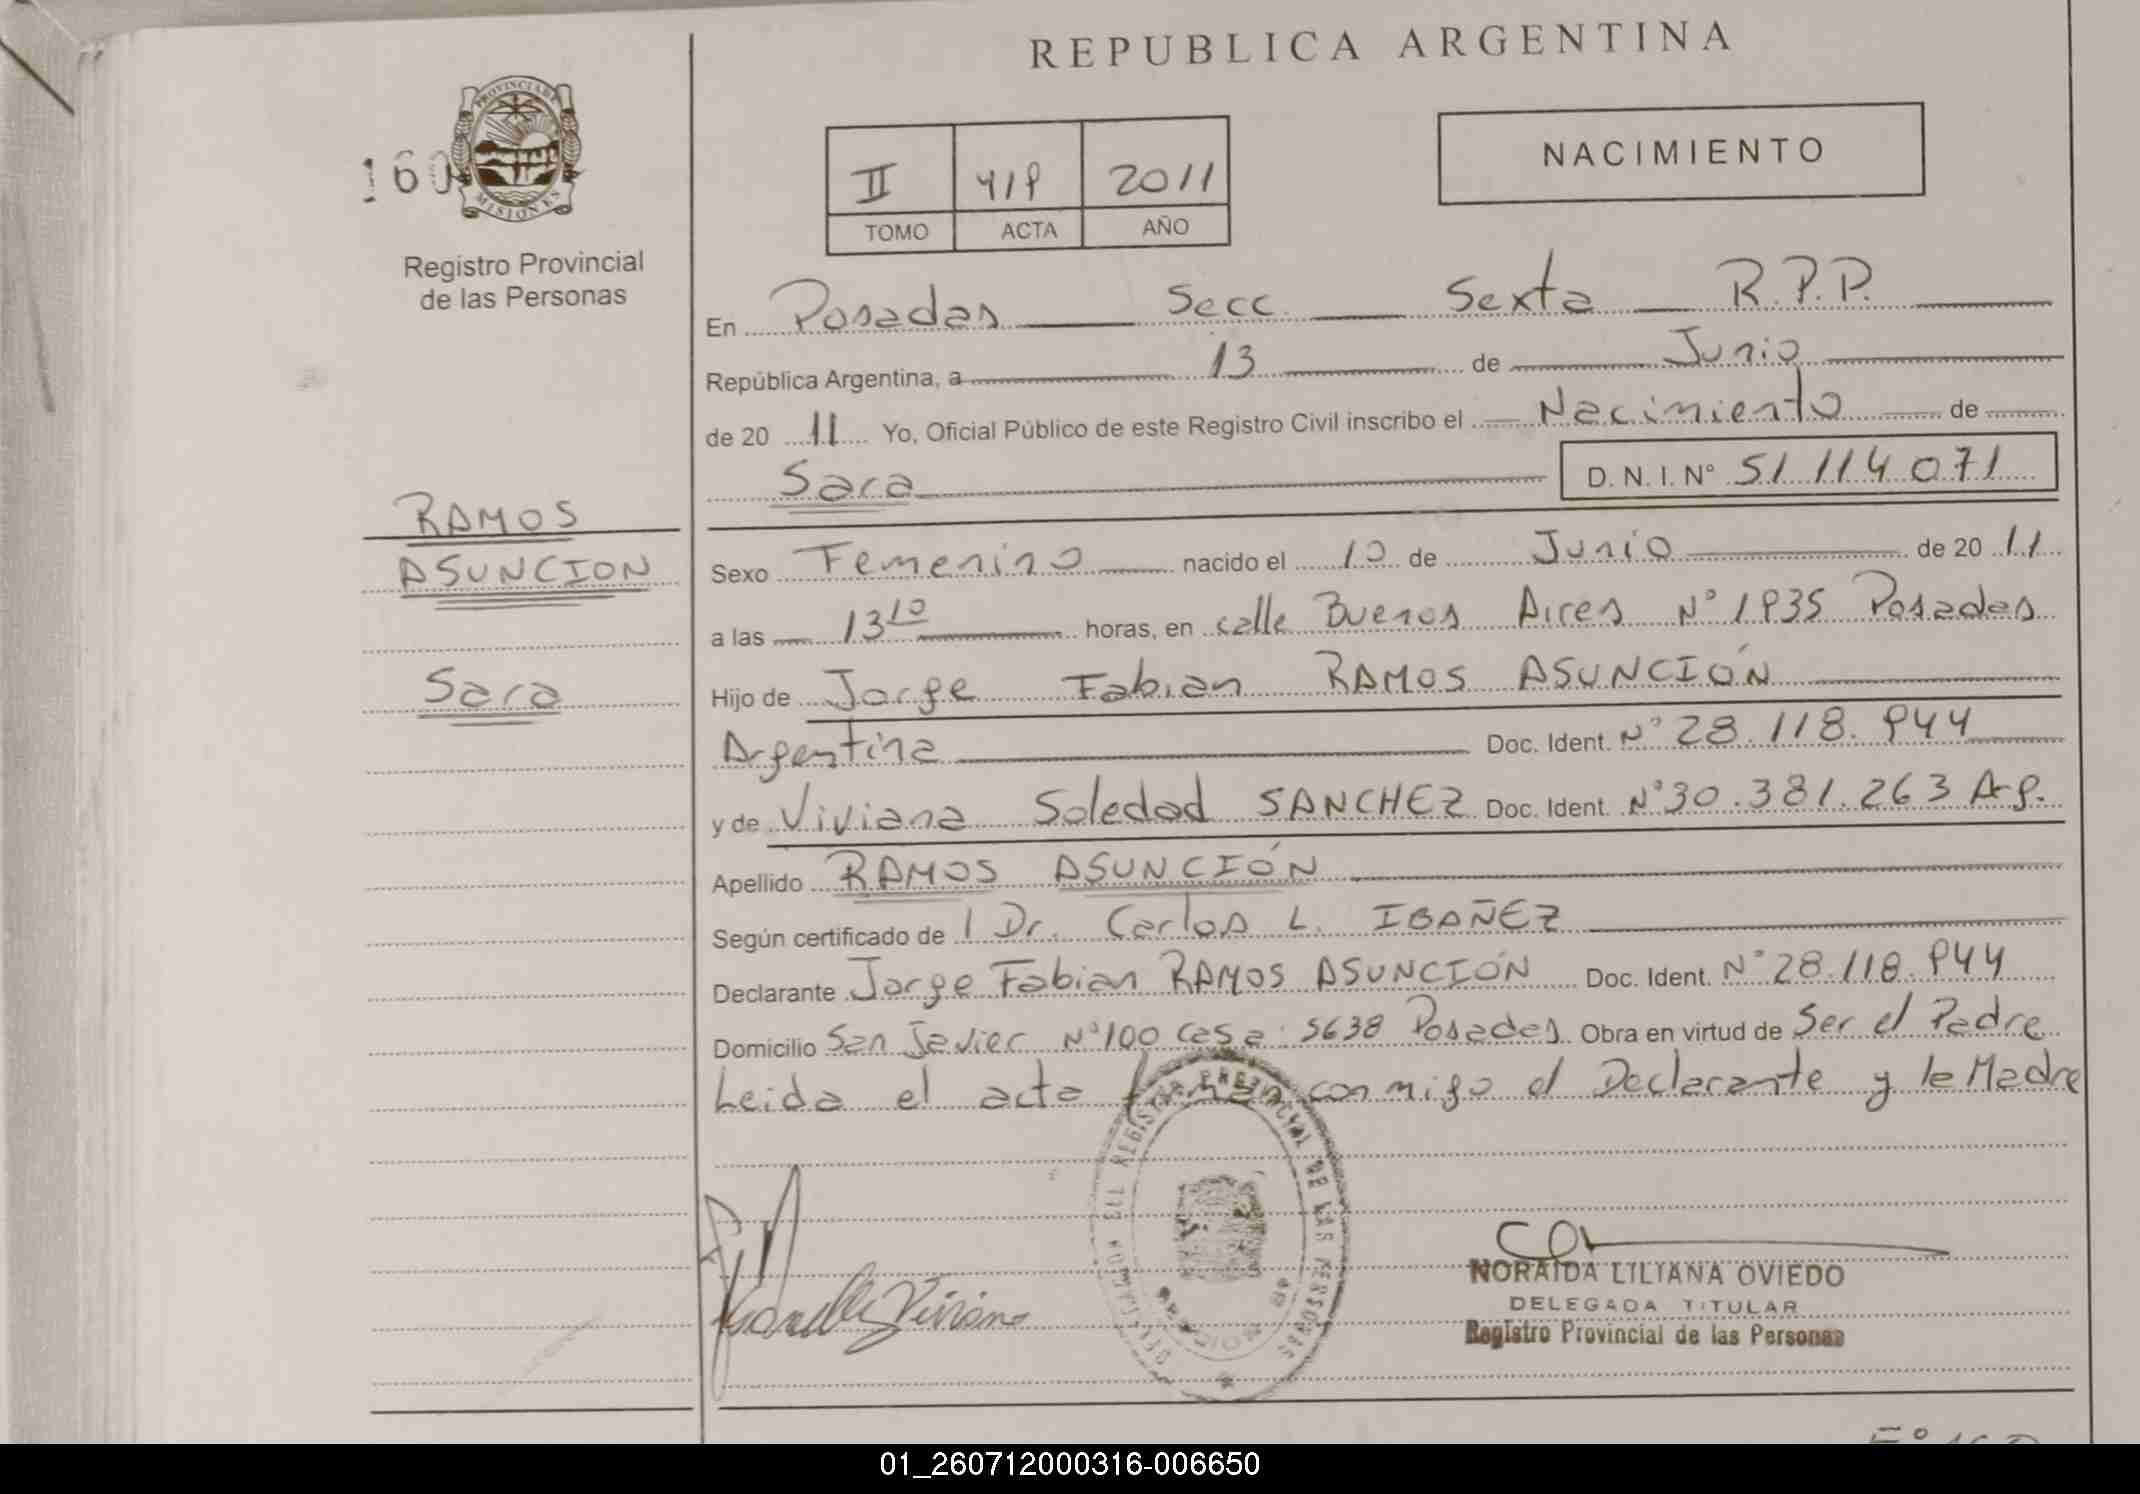 REPUBLICA ARGENTINA
160
PROVINCIA DE
MISIONES
Registro Provincial
de las Personas
II 419 2011
TOMO ACTA AÑO
NACIMIENTO
En Posadas Secc. Sexta R.P.P.
República Argentina, a 13 de Junio
de 20 11 Yo, Oficial Público de este Registro Civil inscribo el Nacimiento de
Sara D. N. I. N° 51.114.071
RAMOS
ASUNCION
Sara
Sexo Femenino nacido el 10 de Junio de 20 11
a las 13 10 horas, en calle Buenos Aires N° 1935 Posadas
Hijo de Jorge Fabian RAMOS ASUNCIÓN
Argentina Doc. Ident. N° 28.118.944
y de Viviana Soledad SANCHEZ Doc. Ident. N° 30.381.263 Arg.
Apellido RAMOS ASUNCIÓN
Según certificado de 1 Dr. Carlos L. IBAÑEZ
Declarante Jorge Fabian RAMOS ASUNCIÓN Doc. Ident. N° 28.118.944
Domicilio San Javier N° 100 casa: 5638 Posadas Obra en virtud de Ser el Padre
Leida el acta firman conmigo el Declarante y la Madre
REGISTRO PROVINCIAL DE LAS PERSONAS
Viviana
NORAIDA LILIANA OVIEDO
DELEGADA TITULAR
Registro Provincial de las Personas
01_260712000316-006650